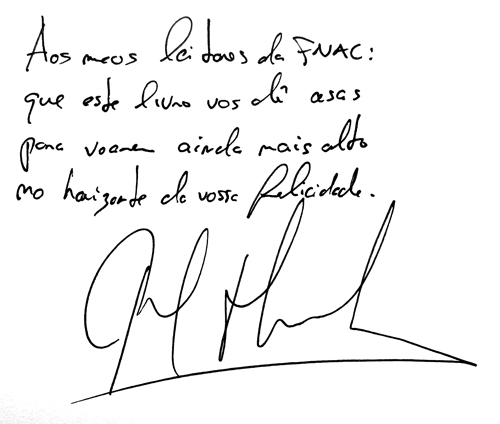 Aos meus leitores da FNAC:
que este livro vos dê asas
para voarem ainda mais alto
no horizonte da vossa felicidade.